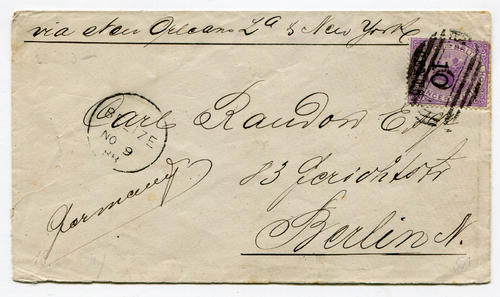 via New Orleans La & New York
10
PENCE
Carl Raudon Esq
BELIZE
NO 9
83 Gerichtstr
Germany
Berlin N.